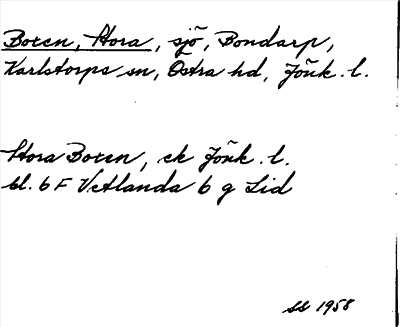 Boren, Stora, sjö, Bondarp,
Karlstorps sn, Östra hd, Jönk. l.
Stora Boren, ek Jönk. l.
bl. 6 F Vetlanda 6 g Lid
SS 1958